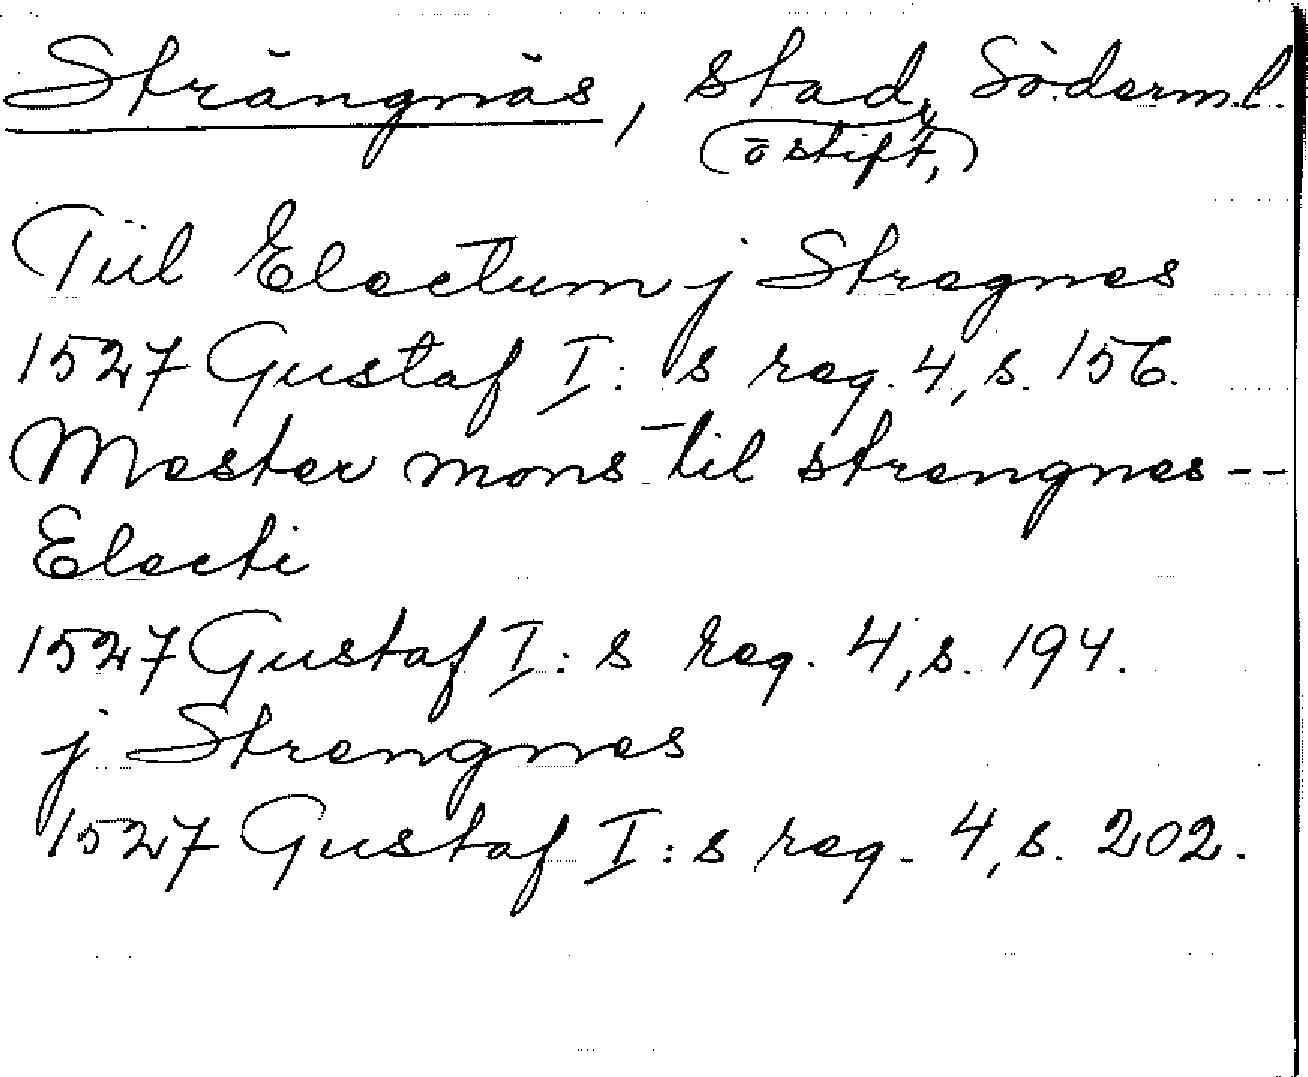 Strängnäs, stad, Söderml.
(o stift,)
Tiil Electum j Stregnes
1527 Gustaf I: s reg. 4, s. 156.
Mester mons til strengnes --
Electi
1527 Gustaf I: s reg. 4, s. 194.
j Strengnes
1527 Gustaf I: s reg. 4, s. 202.